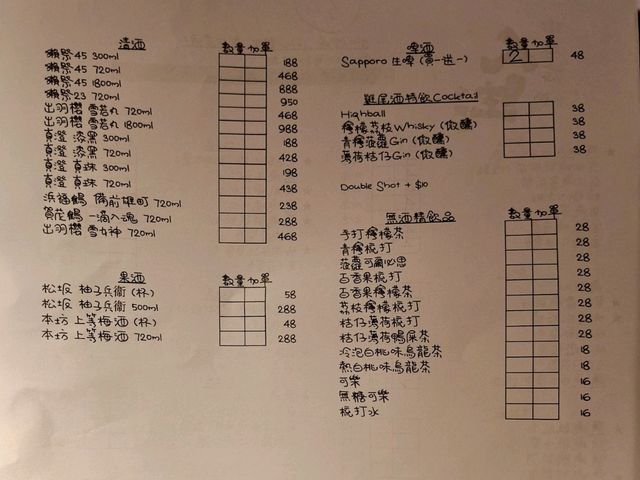 清酒 數量 加單
獺祭 45 300ml 188
獺祭 45 720ml 468
獺祭 45 1800ml 888
獺祭 23 720ml 950
出羽櫻 雪若丸 720ml 468
出羽櫻 雪若丸 1800ml 988
真澄 漆黑 300ml 188
真澄 漆黑 720ml 428
真澄 真珠 300ml 198
真澄 真珠 720ml 438
浜福鶴 備前雄町 720ml 238
賀茂鶴 一滴入魂 720ml 288
出羽櫻 雪女神 720ml 468
果酒 數量 加單
松坂 柚子兵衛 (杯) 58
松坂 柚子兵衛 500ml 288
本坊 上等梅酒 (杯) 48
本坊 上等梅酒 720ml 288
啤酒 數量 加單
Sapporo 生啤 (買一送一) 2 48
雞尾酒特飲 Cocktail
Highball 38
檸檬荔枝 Whisky (微醺) 38
青檸菠蘿 Gin (微醺) 38
薄荷桔仔 Gin (微醺) 38
Double Shot + $10
無酒精飲品 數量 加單
手打檸檬茶 28
青檸梳打 28
菠蘿可爾必思 28
百香果梳打 28
百香果檸檬茶 28
荔枝檸檬梳打 28
桔仔薄荷梳打 28
桔仔薄荷鴨屎茶 28
冷泡白桃味烏龍茶 18
熱白桃味烏龍茶 18
可樂 16
無糖可樂 16
梳打水 16